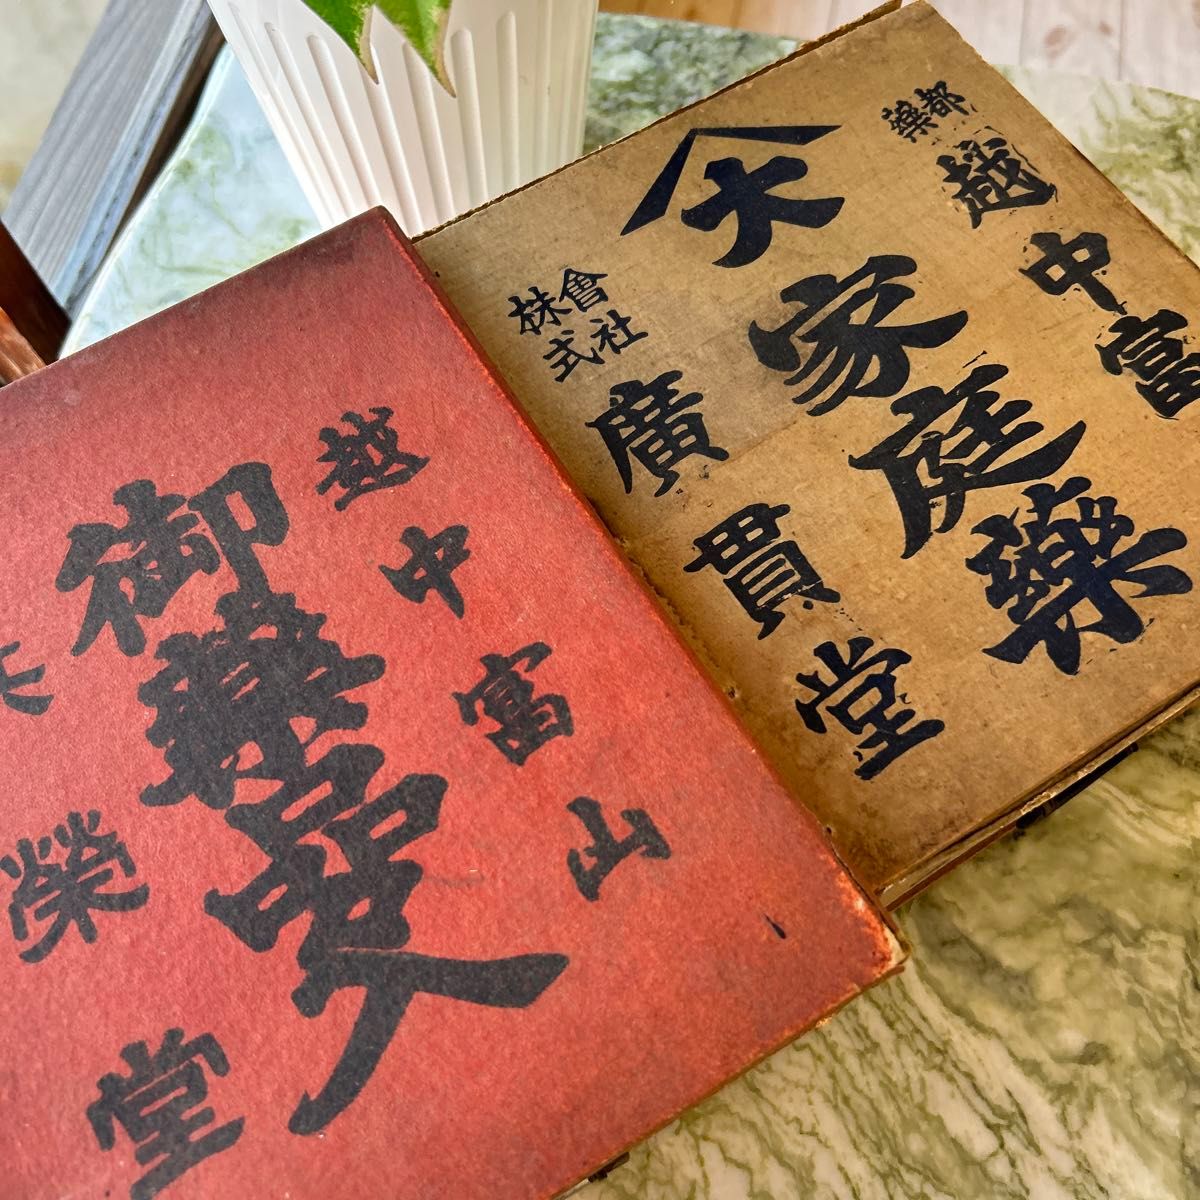 藥都
越中富
大
家庭藥
株式
會社
廣貫堂
越中富山
御藥
榮堂